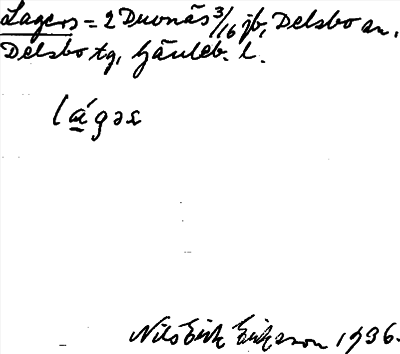 Lagers = 2 Duvnäs 3/16 jb, Delsbo sn.
Delsbo tg, Gävleb. l.
lágəs
Nils Erik Eriksson 1936.